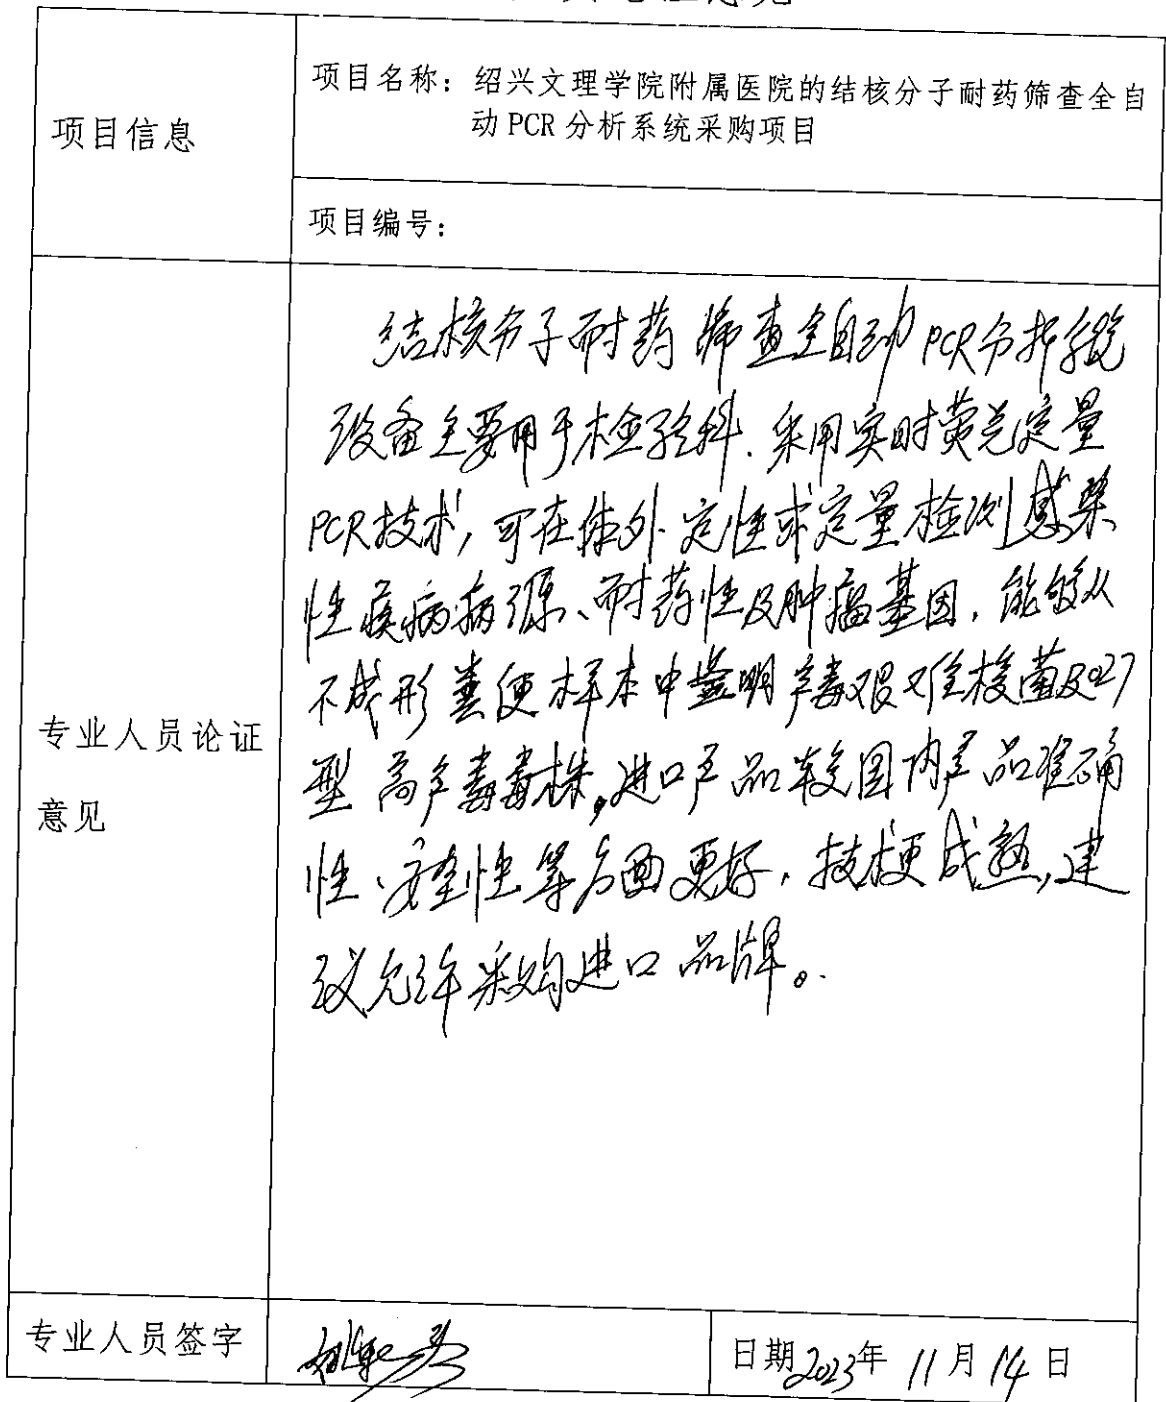 项目信息
项目名称：绍兴文理学院附属医院的结核分子耐药筛查全自
动PCR分析系统采购项目
项目编号：
专业人员论证
意见
结核分子耐药筛查全自动PCR分析系统
设备主要用于检验科.采用实时荧光定量
PCR技术,可在体外定性或定量检测感染
性疾病病源、耐药性及肿瘤基因,能够从
不成形粪便样本中鉴明产毒艰难梭菌及027
型高产毒毒株。进口产品较国内产品准确
性、安全性等方面更好,技术更成熟,建
议允许采购进口品牌。
专业人员签字
日期2023年11月14日